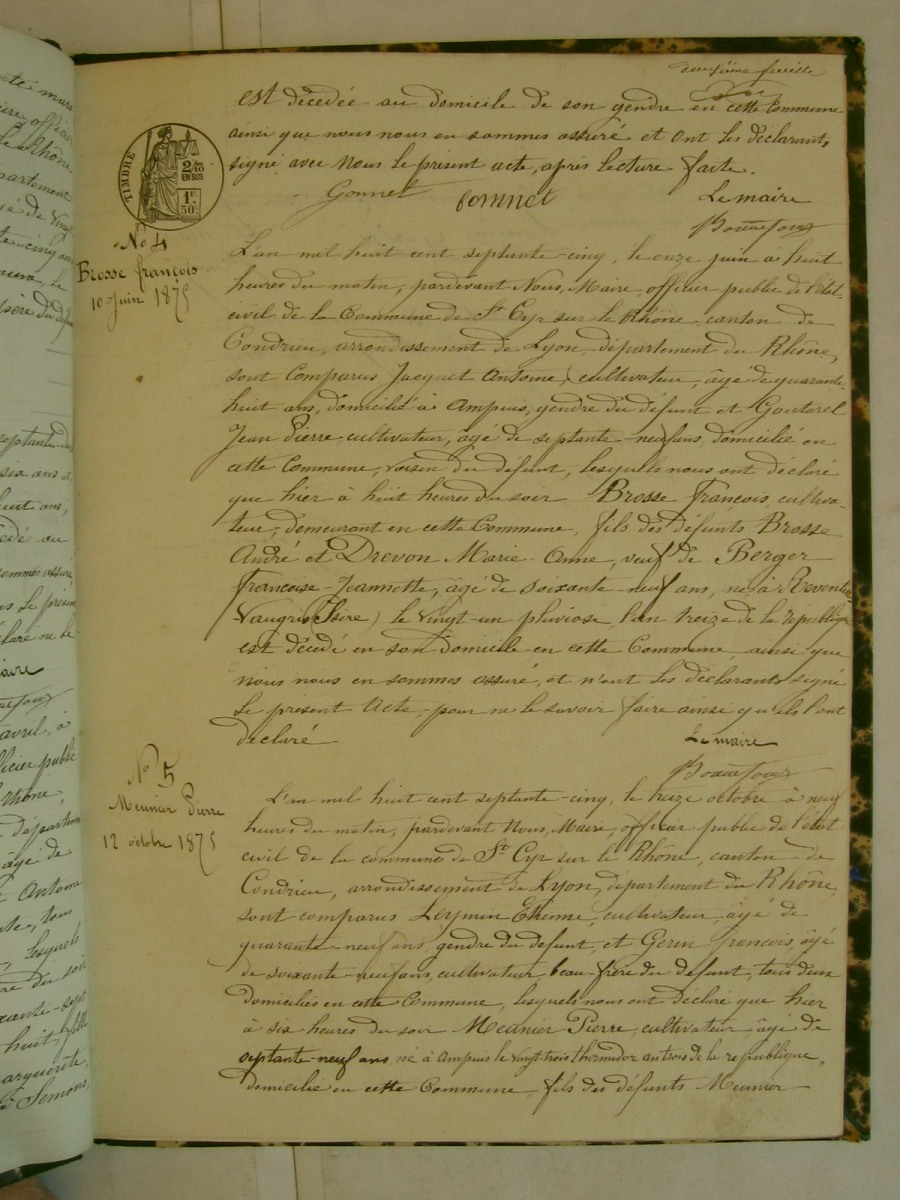 deuxième feuille
est décedée au domicile de son gendre en cette Commune
ainsi que nous nous en sommes assuré et ont les déclarants
signé avec Nous le présent acte, après lecture faite.
Gonnet Gonnet Le maire
TIMBRE 2/10 EN SUS 1F. 50c.
No 4
Brosse françois
10 Juin 1875
L'an mil huit cent septante-cinq, le onze juin à huit
heures du matin, pardevant Nous, Maire, officier public de l'état-
civil de la Commune de St Cyr sur le Rhône, canton de
Condrieu, arrondissement de Lyon, département du Rhône,
sont Comparus Jacquet Antoine, cultivateur, âgé de quarante-
huit ans, domicilié à Ampuis, gendre du défunt et Goutarel
Jean Pierre cultivateur, âgé de septante-neuf ans, domicilié en
cette Commune, voisin du défunt, lesquels nous ont déclaré
que hier à huit heures du soir Brosse françois cultiva-
teur, demeurant en cette Commune, fils des défunts Brosse
André et Drevon Marie-Anne, veuf de Berger
françoise-Jeannette, âgé de soixante-neuf ans, né à Reventin-
Vaugris (Isère) le vingt-un pluviose, l'an treize de la république
est décédé en son domicile en cette Commune ainsi que
nous nous en sommes assuré, et n'ont les déclarants signé
Le présent Acte, pour ne le savoir faire ainsi qu'ils l'ont
declaré Le maire
No 5
Meunier Pierre
12 octobre 1875
L'an mil huit cent septante-cinq, le treize octobre à neuf
heures du matin, pardevant Nous, Maire, officier public de l'état
civil de la commune de St Cyr sur le Rhône, canton de
Condrieu, arrondissement de Lyon, département du Rhône,
sont comparus Leymin Etienne, cultivateur, âgé de
quarante-neuf ans, gendre du défunt, et Gerin françois, âgé
de soixante-neuf ans, cultivateur, beau-frère du défunt, tous deux
domiciliés en cette Commune, lesquels nous ont déclaré que hier
à six heures du soir Meunier Pierre, cultivateur âgé de
septante-neuf ans né à Ampuis le vingt-trois thermidor an trois de la république,
domicilié en cette Commune, fils des défunts Meunier